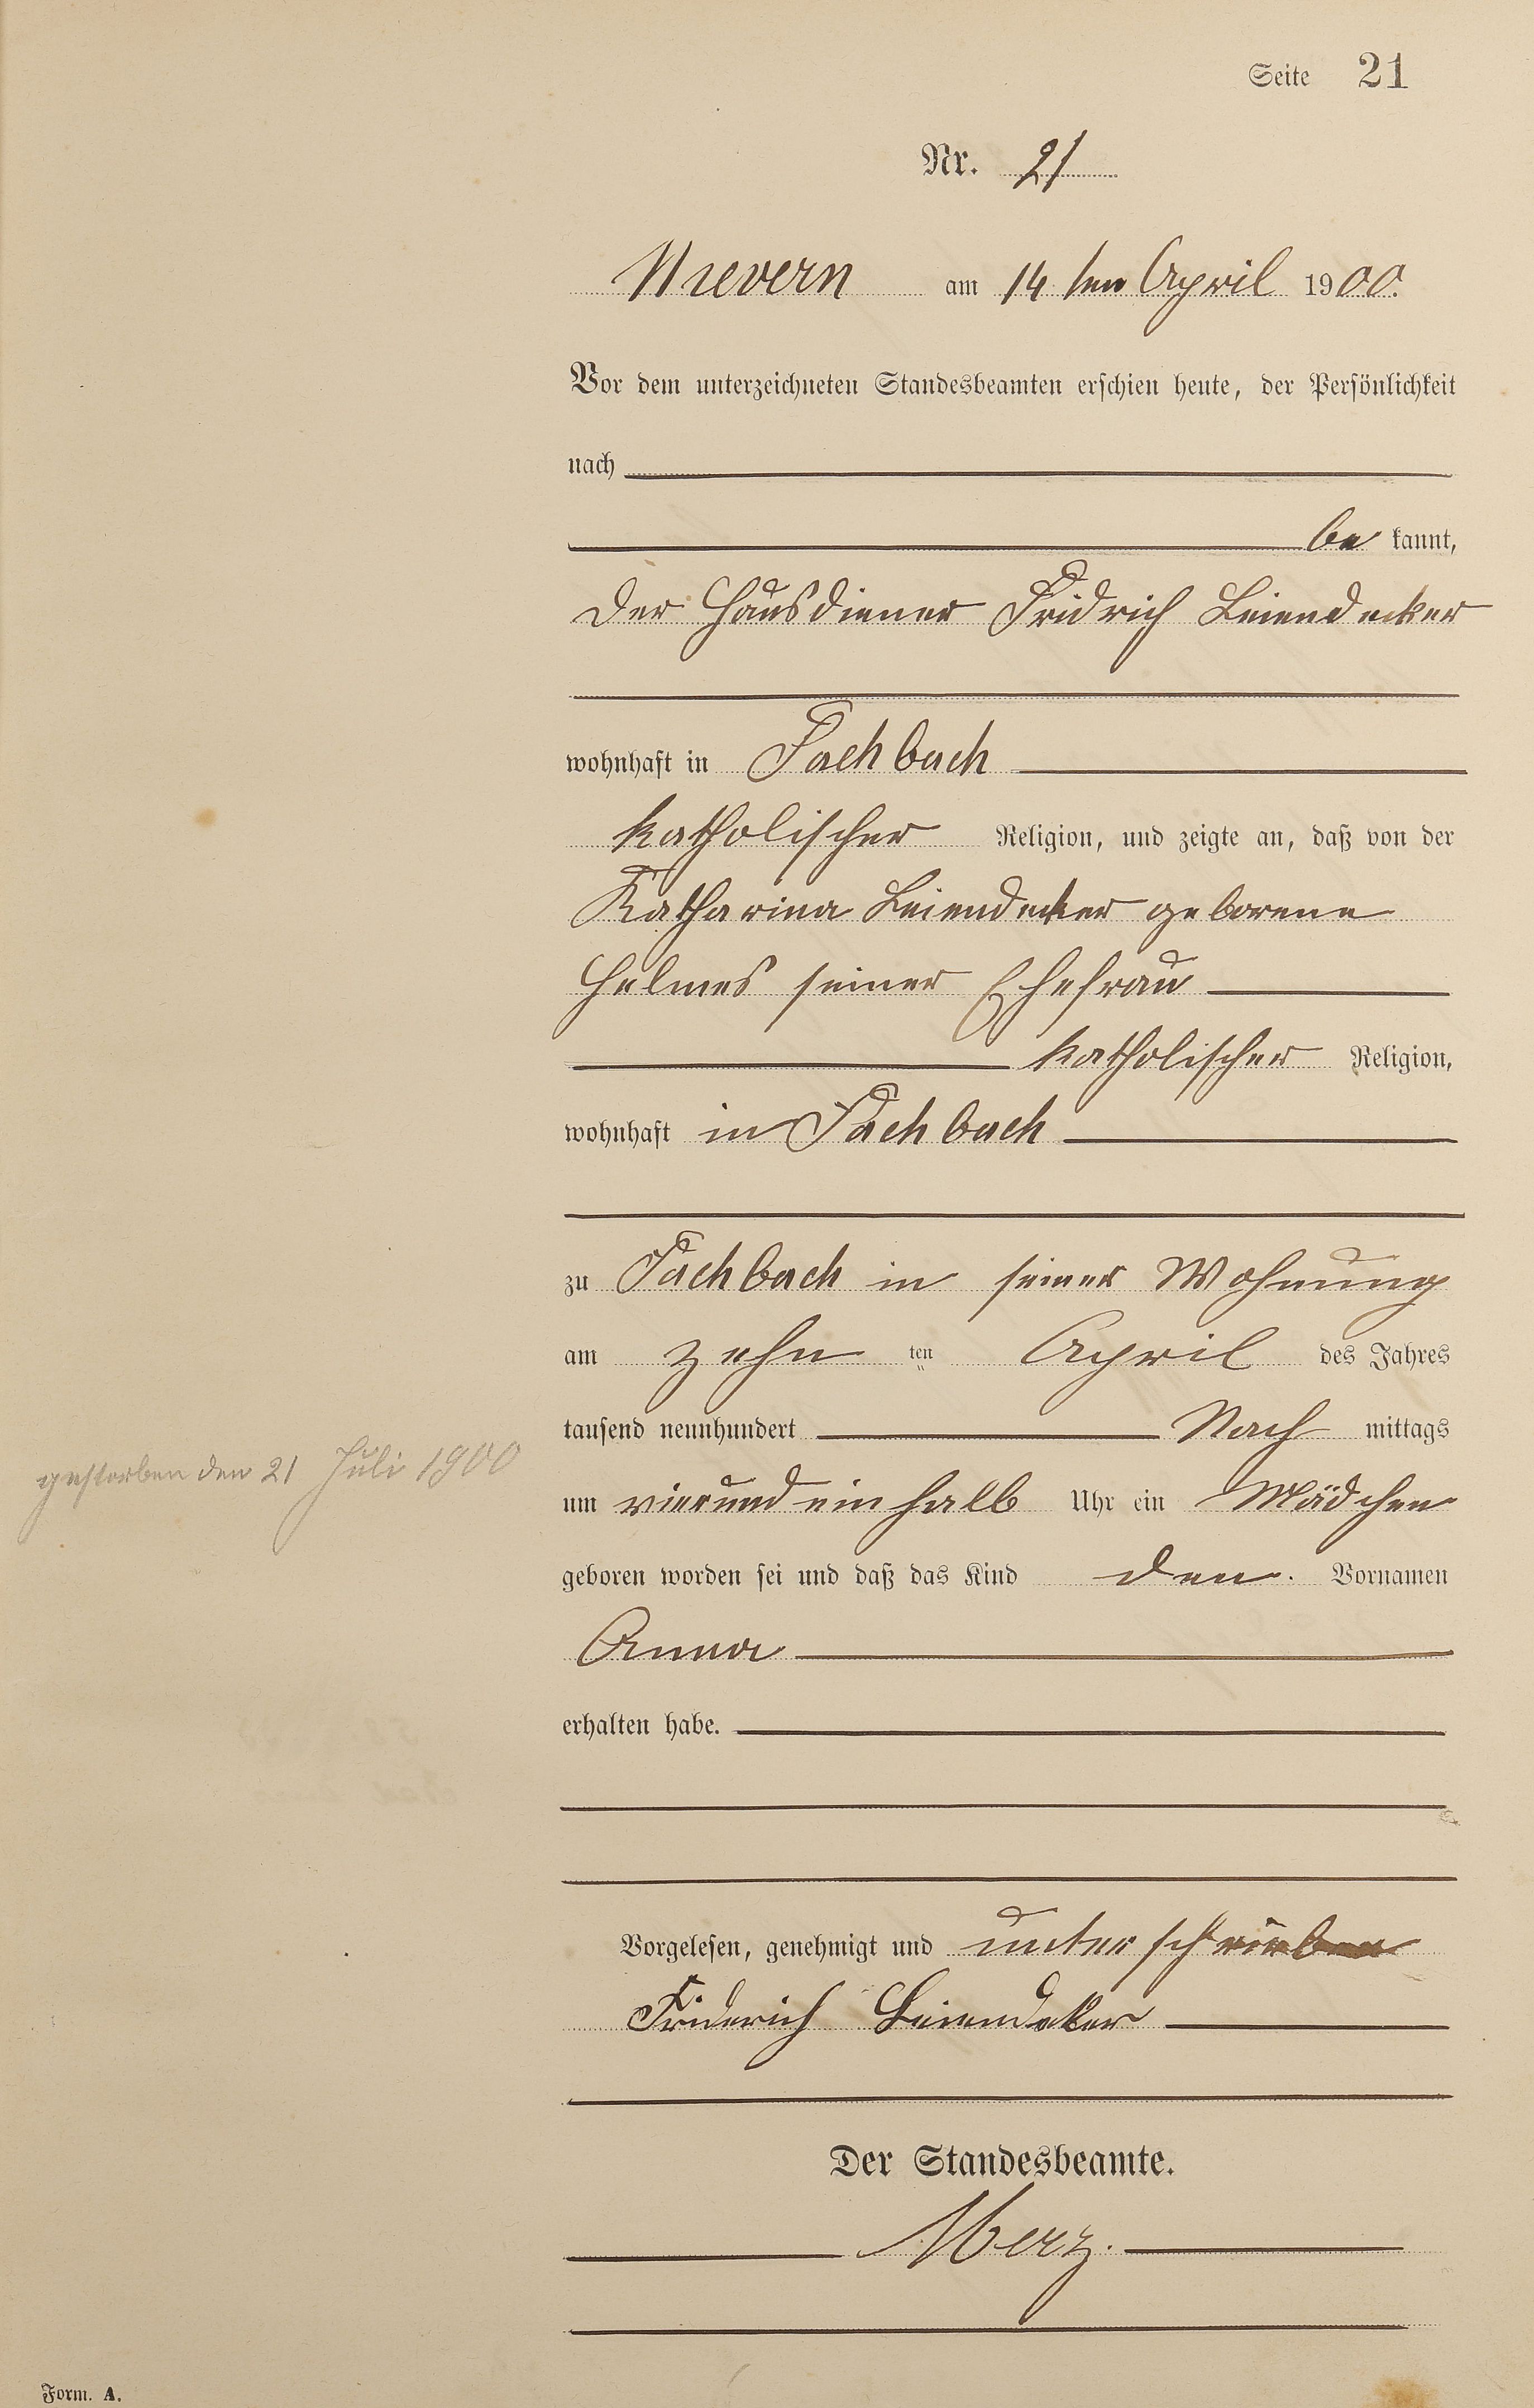 Seite 21
Nr. 21
Nievern am 14 ten April 1900.
Vor dem unterzeichneten Standesbeamten erschien heute, der Persönlichkeit
nach
be kannt,
der Hausdiener Fridrich Leiendecker
wohnhaft in Fachbach
katholischer Religion, und zeigte an, daß von der
Katharina Leiendecker geborene
Helmes seiner Ehefrau
katholischer Religion,
wohnhaft in Fachbach
zu Fachbach in seiner Wohnung
am zehn ten April des Jahres
tausend neunhundert Nach mittags
gestorben den 21 Juli 1900
um vierundeinhalb Uhr ein Mädchen
geboren worden sei und daß das Kind den. Vornamen
Anna
erhalten habe.
Vorgelesen, genehmigt und unterschrieben
Friderich Leiendeker
Der Standesbeamte.
Merz.
Form. A.